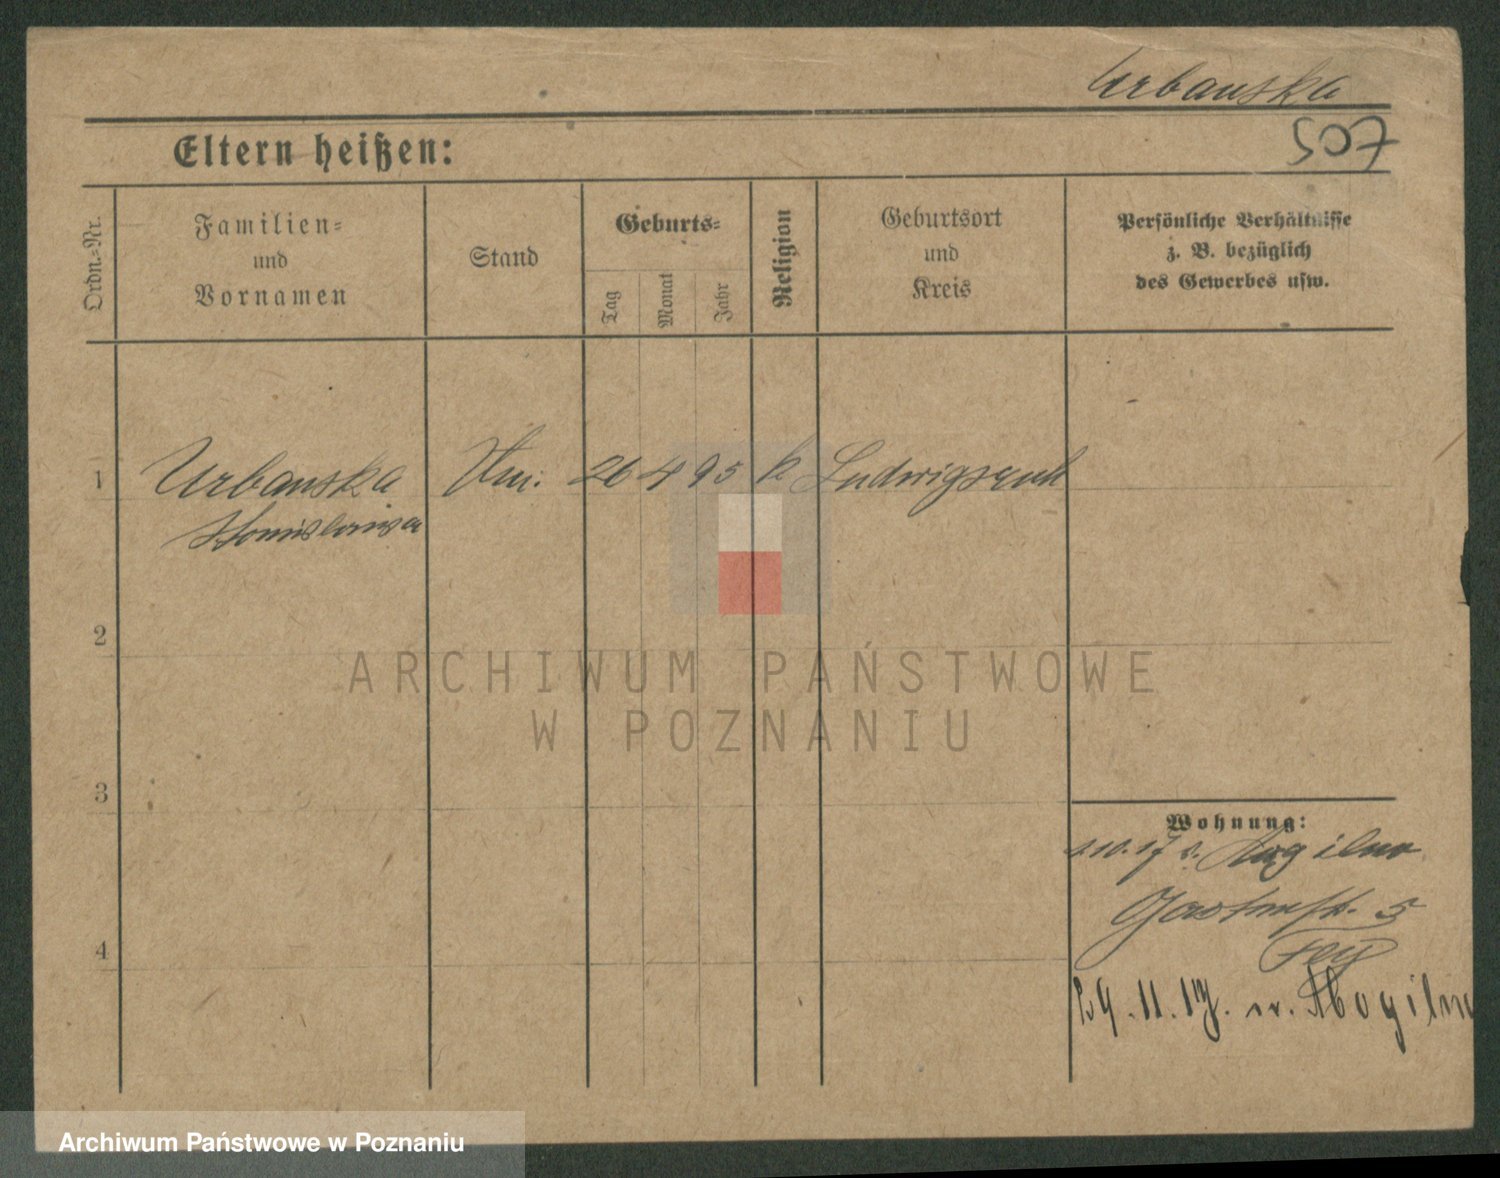 Urbanska
Eltern heißen:
507
Ordn.-Nr.
Familien-
und
Vornamen
Stand
Geburts-
Tag
Monat
Jahr
Religion
Geburtsort
und
Kreis
Persönliche Verhältnisse
z. B. bezüglich
des Gewerbes usw.
1 Urbanska 26 4 95 k
Stanislawa
2
ARCHIWUM PAŃSTWOWE
W POZNANIU
3
Wohnung:
4.10.17 v. Mogilno
5
4
Fey
29.11.17. n. Mogilno
Archiwum Państwowe w Poznaniu